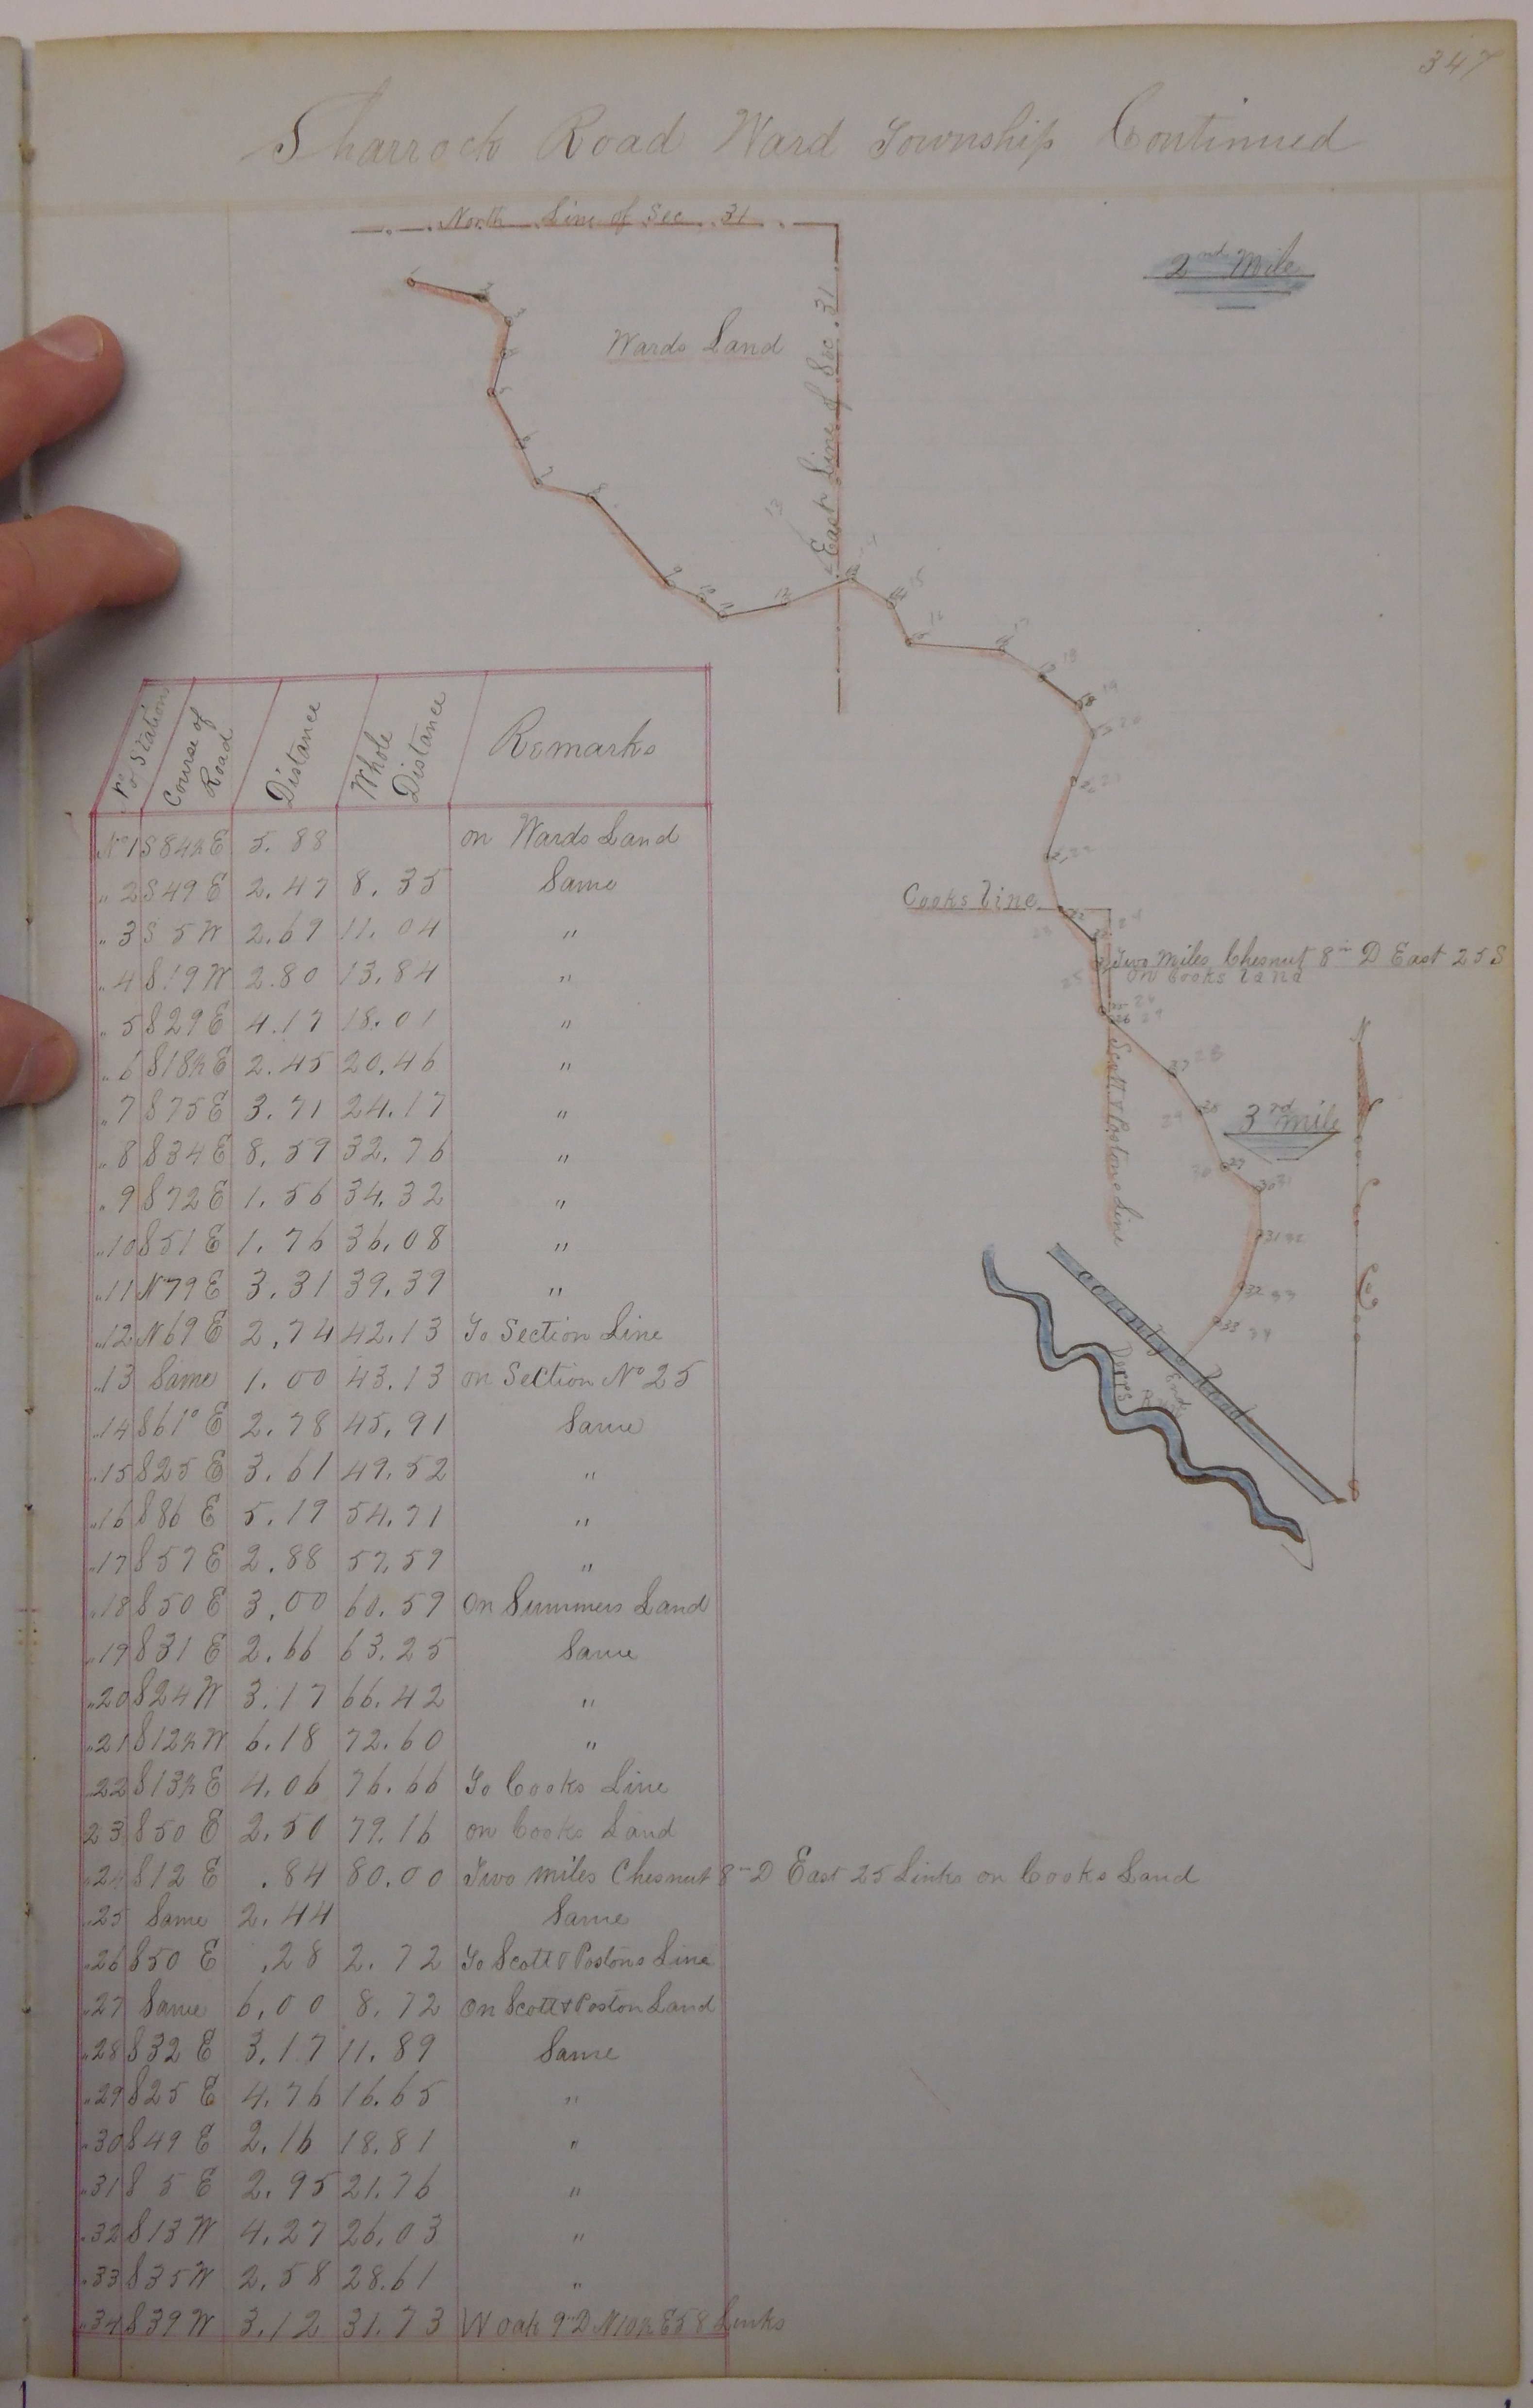 347
Sharrock Road Ward Township Continued
North Line of Sec. 31
2nd Mile
Wards Land
East Line of Sec. 31
Cooks Line
Two Miles Chesnut 8 in D East 25 S
on Cooks Land
Scott & Postons Line
3rd mile
N
S
County Road
End Road
No of Stations Course of Road Distance Whole Distance Remarks
No 1 S 84½ E 5.88 on Wards Land
" 2 S 49 E 2.47 8.35 Same
" 3 S 5 W 2.69 11.04 "
" 4 S 19 W 2.80 13.84 "
" 5 S 29 E 4.17 18.01 "
" 6 S 18½ E 2.45 20.46 "
" 7 S 75 E 3.71 24.17 "
" 8 S 34 E 8.59 32.76 "
" 9 S 72 E 1.56 34.32 "
" 10 S 51 E 1.76 36.08 "
" 11 N 79 E 3.31 39.39 "
" 12 N 69 E 2.74 42.13 To Section Line
" 13 Same 1.00 43.13 on Section No 25
" 14 S 61° E 2.78 45.91 Same
" 15 S 25 E 3.61 49.52 "
" 16 S 86 E 5.19 54.71 "
" 17 S 57 E 2.88 57.59 "
" 18 S 50 E 3.00 60.59 On Summers Land
" 19 S 31 E 2.66 63.25 Same
" 20 S 24 W 3.17 66.42 "
" 21 S 12½ W 6.18 72.60 "
" 22 S 13½ E 4.06 76.66 To Cooks Line
23 S 50 E 2.50 79.16 on Cooks Land
" 24 S 12 E .84 80.00 Two miles Chesnut 8 in D East 25 Links on Cooks Land
" 25 Same 2.44 Same
" 26 S 50 E .28 2.72 To Scott & Postons Line
" 27 Same 6.00 8.72 On Scott & Poston Land
" 28 S 32 E 3.17 11.89 Same
" 29 S 25 E 4.76 16.65 "
" 30 S 49 E 2.16 18.81 "
" 31 S 5 E 2.95 21.76 "
" 32 S 13 W 4.27 26.03 "
" 33 S 35 W 2.58 28.61 "
" 34 S 39 W 3.12 31.73 W oak 9 in D N 10½ E 58 Links